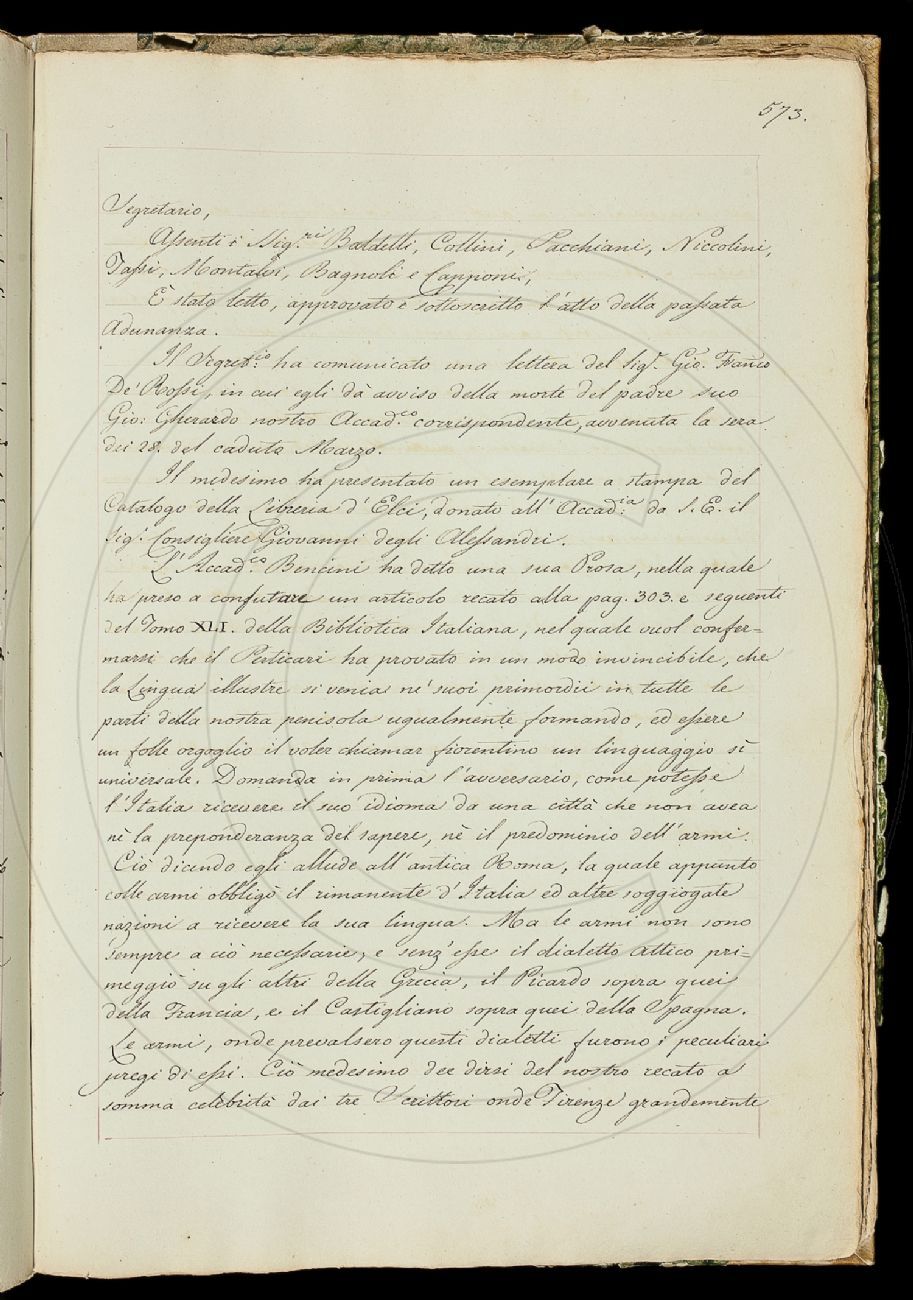 573.
Segretario,
Assenti i Sig.ri Baldelli, Collini, Pacchiani, Niccolini,
Tassi, Montalvi, Bagnoli e Capponi,
È stato letto, approvato e sottoscritto l'atto della passata
Adunanza.
Il Segret.rio ha comunicato una lettera del Sig.r Gio. Franco
De' Rossi, in cui egli dà avviso della morte del padre suo
Gio: Gherardo nostro Accad.co corrispondente, avvenuta la sera
dei 28. del caduto Marzo.
Il medesimo ha presentato un esemplare a stampa del
Catalogo della Libreria d'Elci, donato all'Accad.ia da S. E. il
Sig.r Consigliere Giovanni degli Alessandri.
L'Accad.co Bencini ha detto una sua Prosa, nella quale
ha preso a confutare un articolo recato alla pag. 303. e seguenti
del Tomo XLI. della Biblioteca Italiana, nel quale vuol confer=
marsi che il Perticari ha provato in un modo invincibile, che
la Lingua illustre si venia ne' suoi primordii in tutte le
parti della nostra penisola ugualmente formando, ed essere
un folle orgoglio il voler chiamar fiorentino un linguaggio sì
universale. Domanda in prima l'avversario, come potesse
l'Italia ricevere il suo idioma da una città che non avea
nè la preponderanza del sapere, nè il predominio dell'armi.
Ciò dicendo egli allude all'antica Roma, la quale appunto
colle armi obbligò il rimanente d'Italia ed altre soggiogate
nazioni a ricevere la sua lingua. Ma le armi non sono
sempre a ciò necessarie, e senz'esse il dialetto attico pri=
meggiò su gli altri della Grecia, il Picardo sopra quei
della Francia, e il Castigliano sopra quei della Spagna.
Le armi, onde prevalsero questi dialetti furono i peculiari
pregi di essi. Ciò medesimo dee dirsi del nostro recato a
somma celebrità dai tre Scrittori onde Firenze grandemente